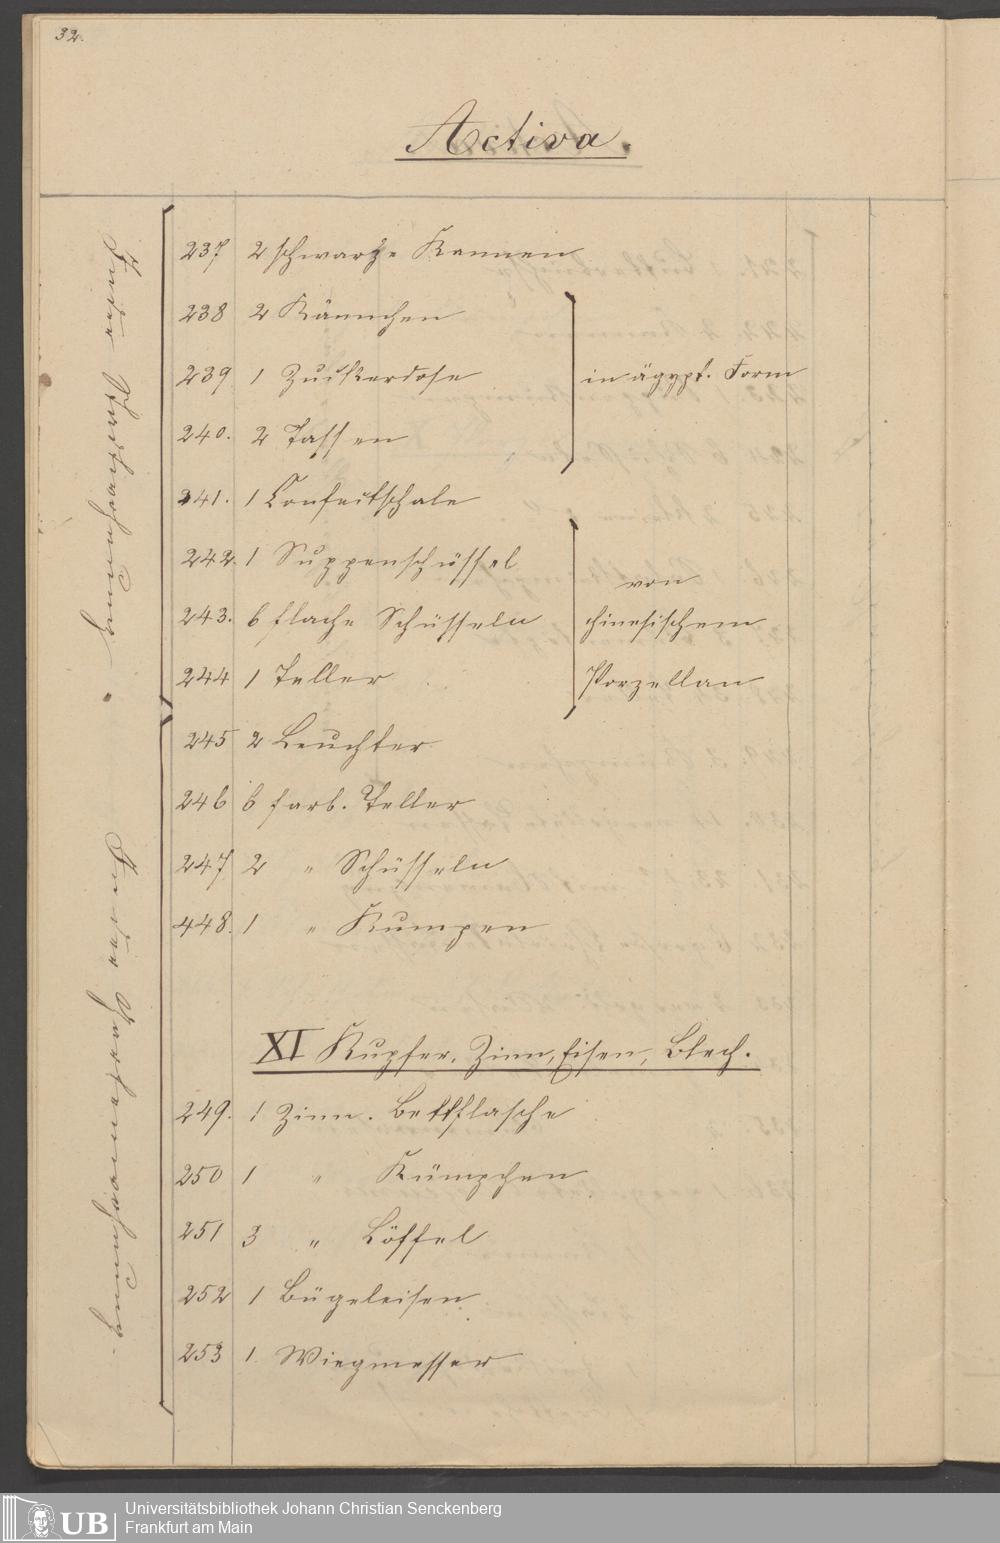 32.
Activa.
237 2 schwarze Kannen
238 2 Kännchen
239 1 Zuckerdose
in ägypt. Form
240. 2 Tassen
241. 1 Confectschale
242. 1 Suppenschüssel
243. 6 flache Schüsseln
244 1 Teller
von
chinesischem
Porzellan
245 2 Leuchter
246 6 farb. Teller
247 2 " Schüsseln
448. 1 " Kumpen
XI Kupfer, Zinn, Eisen, Blech.
249. 1 Zinn. Bettflasche
250 1 " Kümpchen
251 3 " Löffel
252 1 Bügeleisen
253 1 Wiegmesser
Universitätsbibliothek Johann Christian Senckenberg
Frankfurt am Main
UB